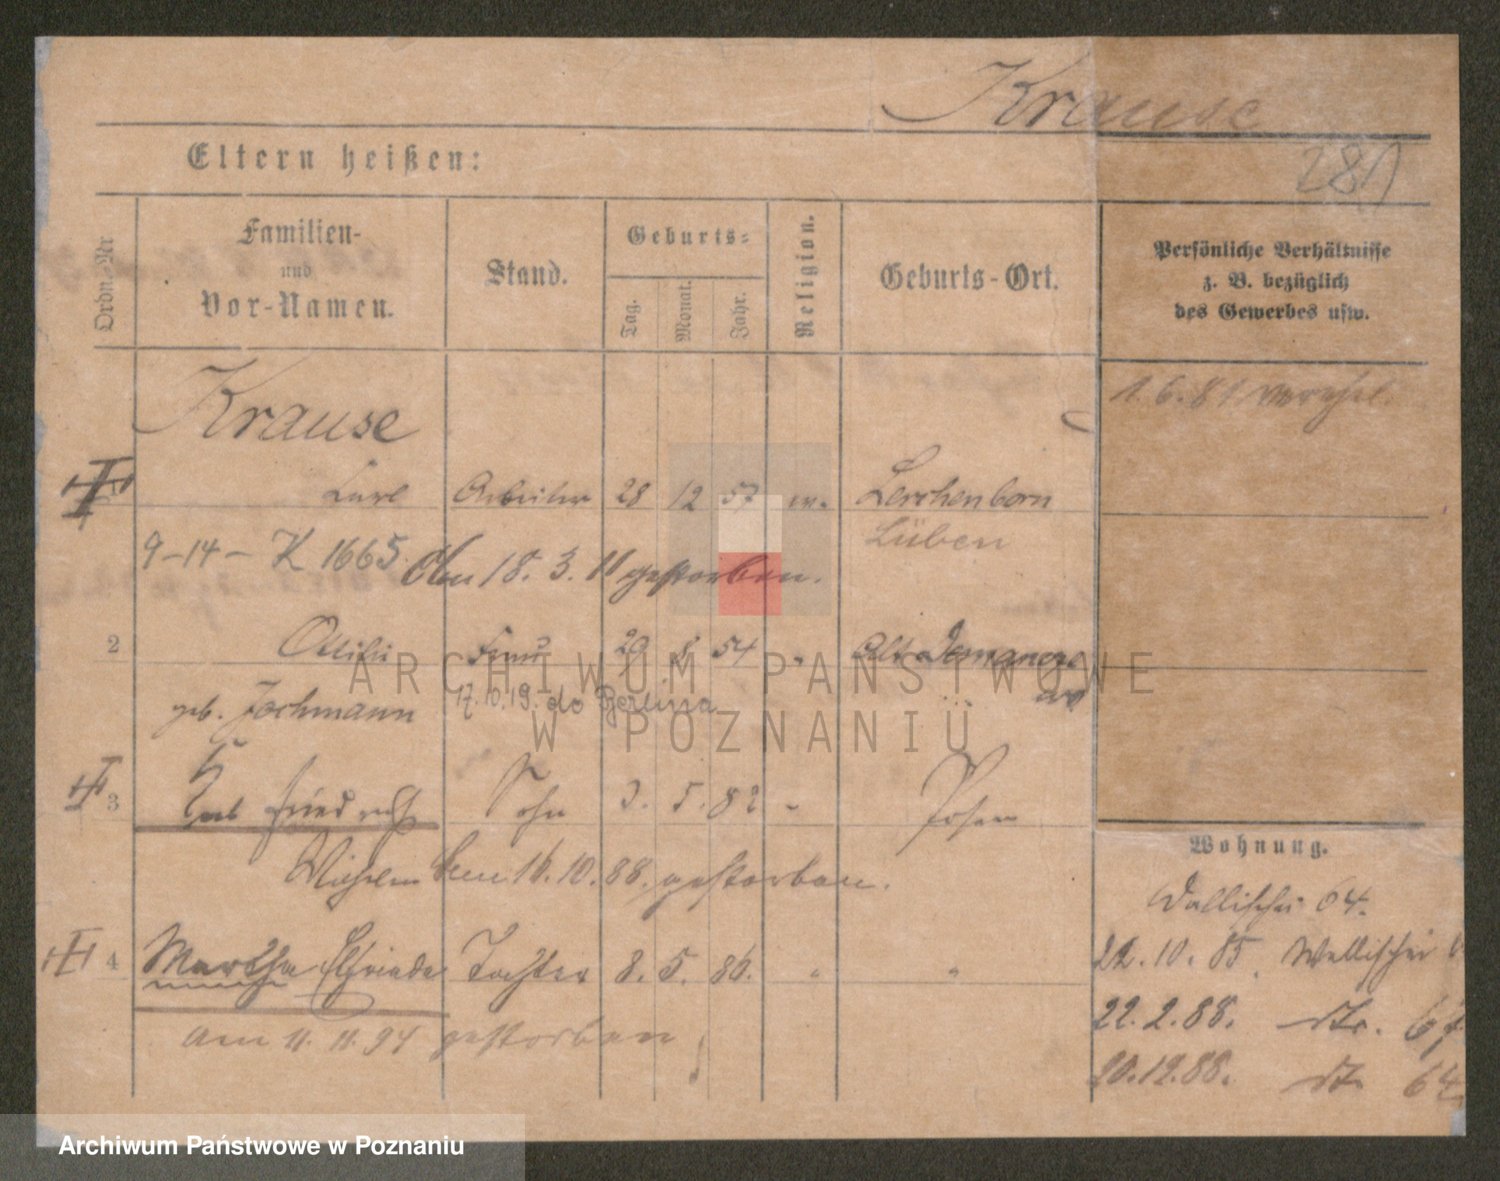 Krause
281
Eltern heißen:
Ordn.-Nr
Familien-
und
Vor-Namen.
Stand.
Geburts-
Tag.
Monat.
Jahr.
Religion.
Geburts-Ort.
Persönliche Verhältnisse
z. B. bezüglich
des Gewerbes usw.
Krause
1. 6. 81
Carl Arbeiter 28 12 57 ev. Lerchenborn
Lüben
9-14- K 1665. Am 18. 3. 11 gestorben.
2 Ottilie Frau 29 8 54 "
geb. Jochmann 17.10.19. do Berlina
3 Friedrich Sohn 3. 5. 82 " Posen
Wilhelm Am 16. 10. 88. gestorben.
4 Martha Elfriede Tochter 8. 5. 86. " "
am 11. 11. 94 gestorben
Wohnung.
Wallischei 64.
22. 10. 85. Wallischei
22. 2. 88. dto.
20. 12. 88. dto 64.
ARCHIWUM PAŃSTWOWE
W POZNANIU
Archiwum Państwowe w Poznaniu